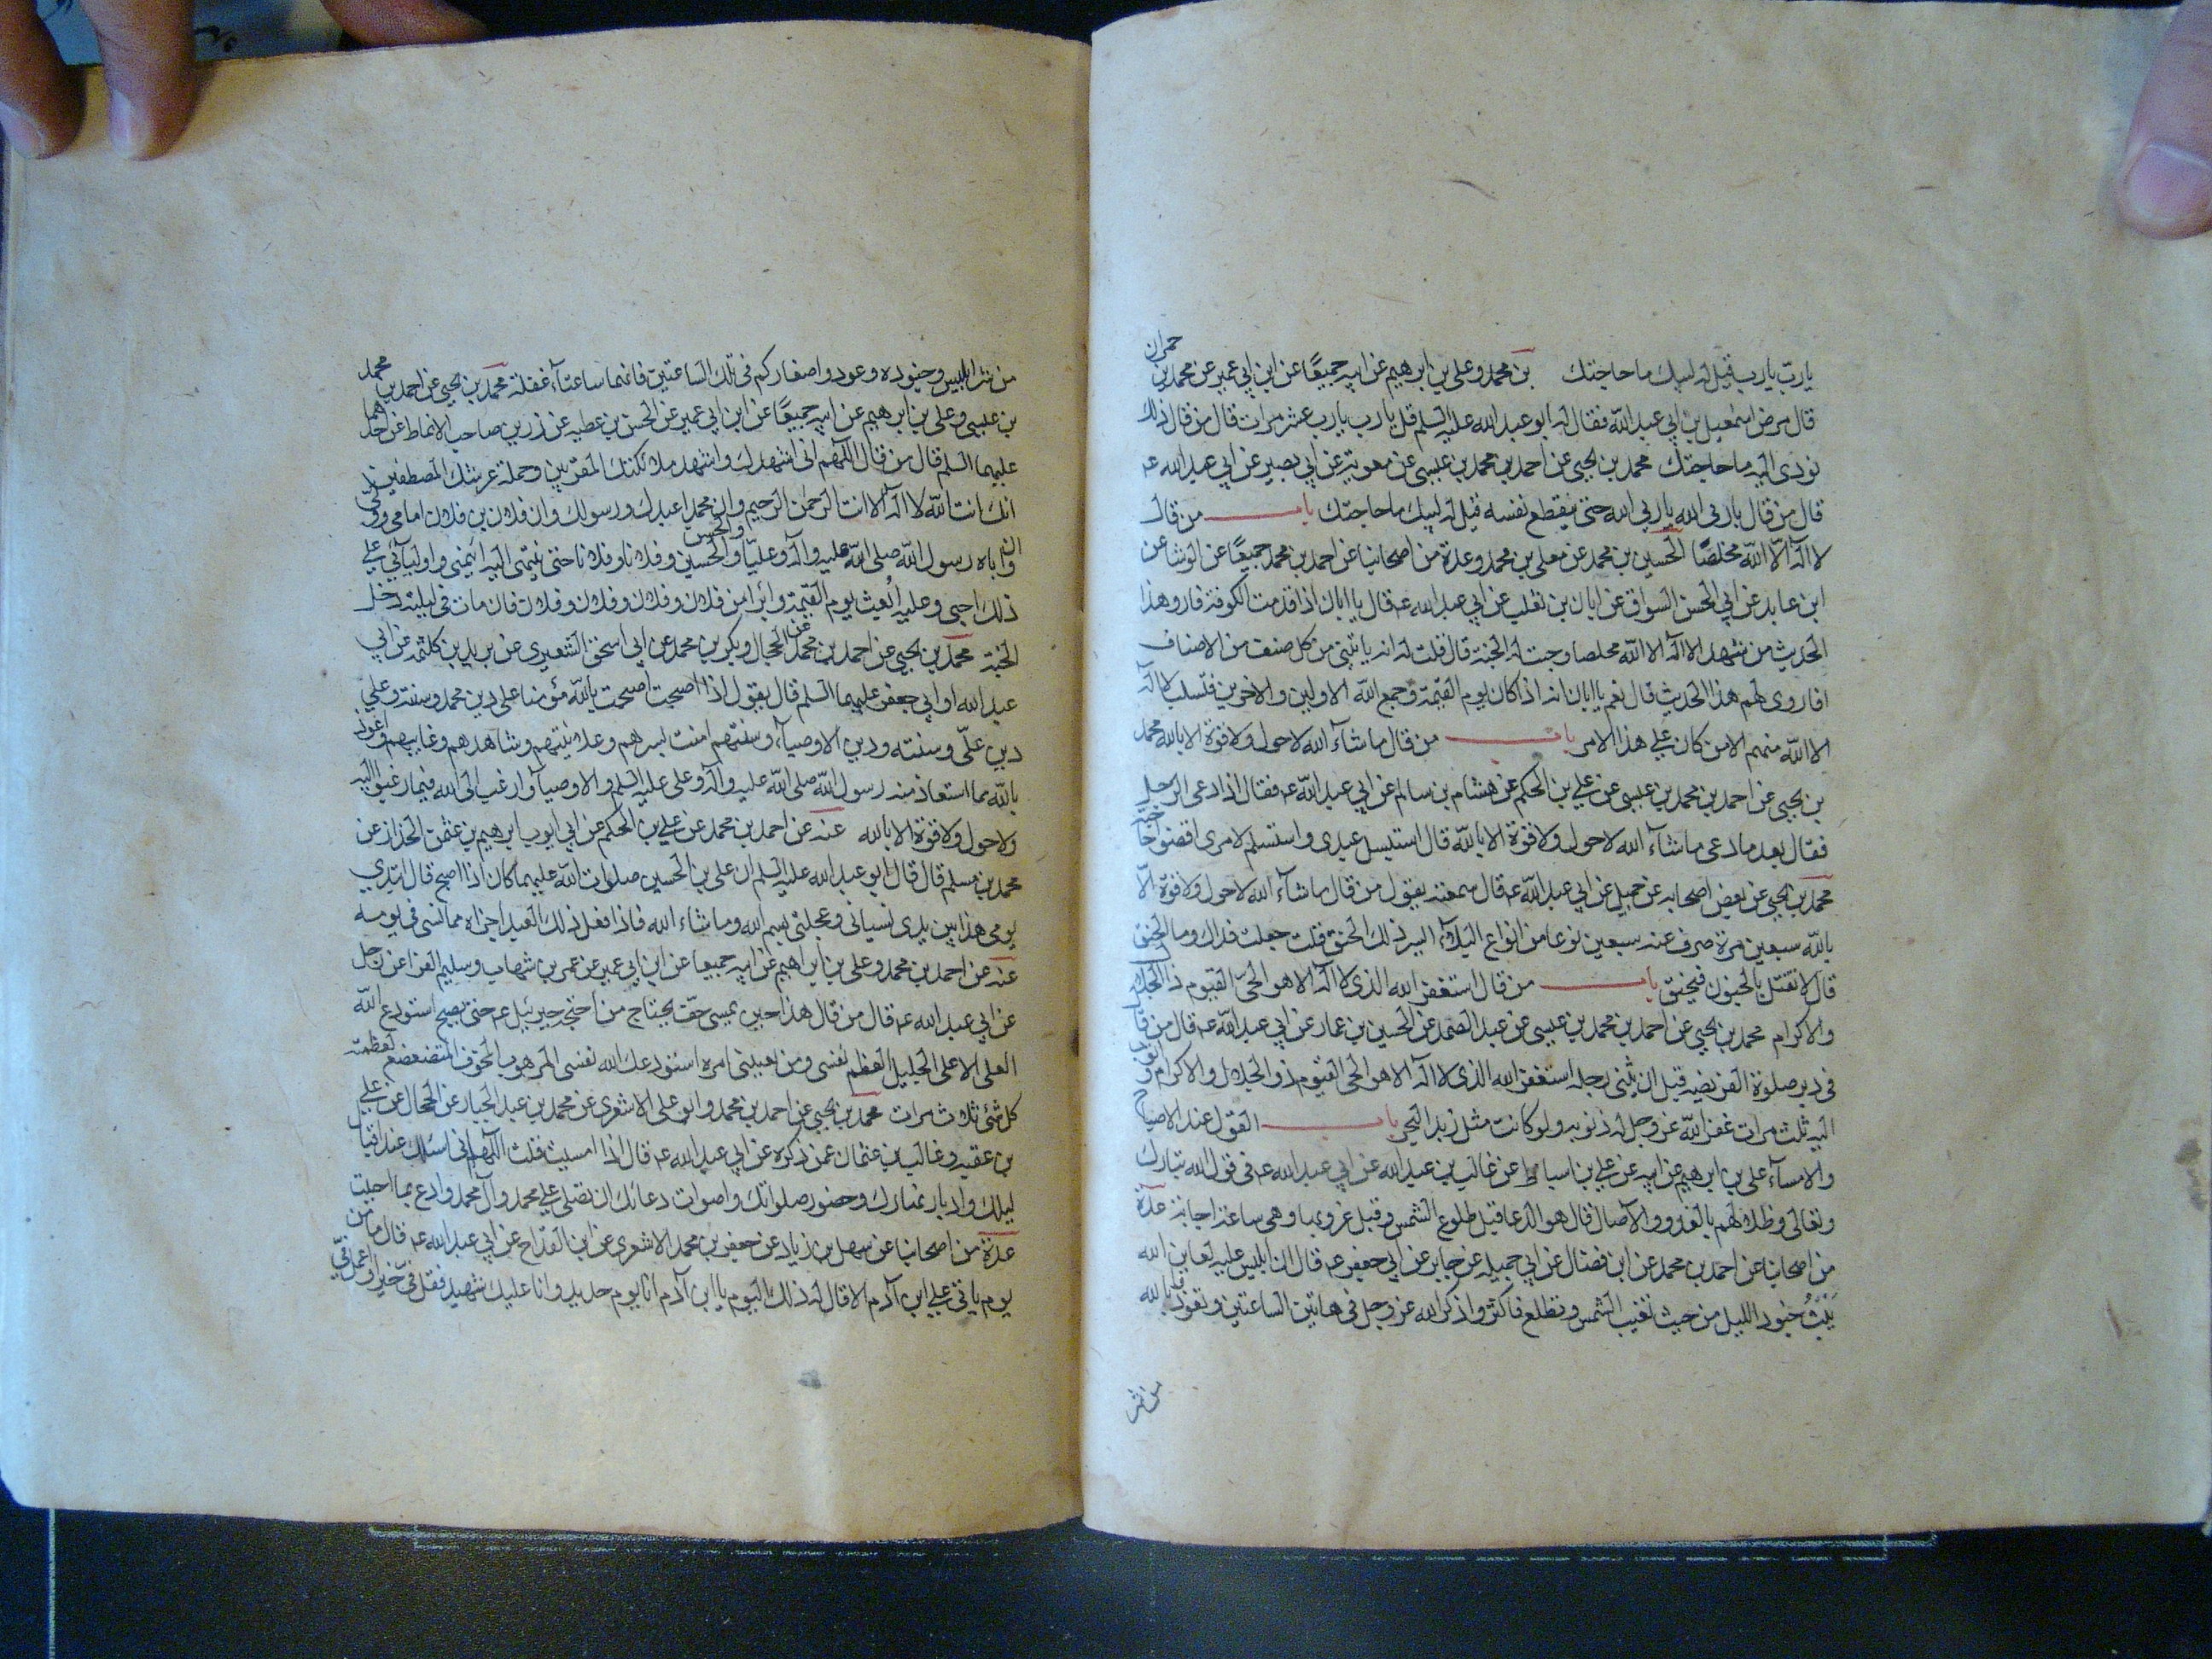 يارب يارب قيل له لبيك ما حاجتك بن محمد وعلى بن ابرهيم عن ابيه جميعًا عن ابن ابي عمير عن محمد بن حمران
قال مرض اسمعيل بن ابي عبد الله فقال له ابو عبد الله عليه السلم قل يا رب يا رب عشر مرات قال من قال ذلك
نودى اليه ما حاجتك محمد بن يحيى عن احمد بن محمد بن عيسى عن معوية عن ابي بصير عن ابي عبد الله عه
قال من قال يا ربي الله يا ربي الله حتى ينقطع نفسه قيل له لبيك ما حاجتك باب من قال
لا اله الا الله مخلصًا الحسين بن محمد عن معلى بن محمد وعدة من اصحابنا عن احمد بن محمد جميعًا عن الوشا عن
ابن عايد عن ابي الحسن السواق عن ابان بن تغلب عن ابي عبد الله عه قال يا ابان اذا قدمت الكوفة فارو هذا
الحديث من شهد الا اله الا الله مخلصا وجبت له الجنة قال قلت له انه ياتيني من كل صنف من الاصناف
افاروى لهم هذا الحديث قال نعم يا ابان انه اذا كان يوم القيمة وجمع الله الاولين والاخرين فتسلب لا اله
الا الله منهم الا من كان على هذا الامر باب من قال ما شآء الله لا حول ولا قوة الا بالله محمد
بن يحيى عن احمد بن محمد بن عيسى عن علي بن الحكم عن هشام بن سالم عن ابي عبد الله عه فقال اذا دعى الرجل
فقال بعد ما دعى ما شآء الله لا حول ولا قوة الا بالله قال استبسل عبدى واستسلم لامرى اقضوا حاجته
محمد بن يحيى عن بعض اصحابه عن جميل عن ابي عبد الله عه قال سمعته يقول من قال ما شآء الله لا حول ولا قوة الا
بالله سبعين مرة صرف عنه سبعين نوعا من انواع البلآء ايسر ذلك الخنق قلت جعلت فداك وما الخنق
قال لا تقتل بالجنون فيخنق باب من قال استغفر الله الذى لا اله الا هو الحيّ القيوم ذا الجلال
والاكرام محمد بن يحيى عن احمد بن محمد بن عيسى عن عبد الصمد عن الحسين بن عمار عن ابي عبد الله عه قال من قال
في دبر صلوة الفريضه قبل ان يثنى رجله استغفر الله الذى لا اله الا هو الحي القيوم ذو الجلال والاكرام واتوب
اليه ثلث مرات غفر الله عز وجل له ذنوبه ولو كانت مثل زبد البحر باب القول عند الاصباح
والامسآء على بن ابرهيم عن ابيه عن علي بن اسباط عن غالب بن عبد الله عن ابي عبد الله عه في قول الله تبارك
وتعالى وظلالهم بالغدو والآصال قال هو الدعا قبل طلوع الشمس وقبل غروبها وهي ساعة اجابة عدة
من اصحابنا عن احمد بن محمد عن ابن فضال عن ابي جميله عن جابر عن ابي جعفر عه قال ان ابليس عليه لعاين الله
يَبُثُّ جنود الليل من حيث تغيب الشمس وتطلع فاكثروا ذكر الله عز وجل في هاتين الساعتين وتعوذوا بالله
من شر
من شر ابليس وجنوده وعودوا صغاركم في تلك الساعتين فانهما ساعتآ غفلة محمد بن يحيى عن احمد بن محمد
بن عيسى وعلى بن ابرهيم عن ابيه جميعًا عن ابن ابي عمير عن الحسن بن عطيه عن زرين صاحب الانماط عن احدهما
عليهما السلم قال من قال اللهم انى اشهدك واشهد ملائكتك المقربين وحملة عرشك المصطفين
انك انت الله لا اله الا انت الرحمن الرحيم وان محمدا عبدك ورسولك وان فلان بن فلان امامى ووليي
وان اباه رسول الله صلى الله عليه وآله وعليّا والحسن والحسين وفلانا وفلانا حتى ينتهى اليه ائمتى واوليآئي على
ذلك احيى وعليه اموت وعليه ابعث يوم القيمة وابرا من فلان وفلان وفلان فان مات في ليلته دخل
الجنة محمد بن يحيى عن احمد بن محمد عن الحجال وبكر بن محمد عن ابي اسحق الشعيرى عن يزيد بن كلثمه عن ابي
عبد الله او ابي جعفر عليهما السلم قال يقول اذا اصبحت اصبحت بالله مؤمنا على دين محمد وسنته وعلى
دين علّى وسنته ودين الاوصيآء وسنتهم امنت بسرهم وعلانيتهم وشاهدهم وغايبهم واعوذ
بالله مما استعاذ منه رسول الله صلى الله عليه وآله وعلى عليه السلم والاوصيآء وارغب الى الله فيما رغبوا اليه
ولا حول ولا قوة الا بالله عنه عن احمد بن محمد عن علي بن الحكم عن ابي ايوب ابرهيم بن عثمن الخزاز عن
محمد بن مسلم قال قال ابو عبد الله عليه السلم ان على بن الحسين صلوات الله عليهما كان اذا اصبح قال ابتدى
يومى هذا بين يدى نسيانى وعجلتى بسم الله وما شاء الله فاذا فعل ذلك العبد اجزاه مما نسى في يومه
عنه عن احمد بن محمد وعلى بن ابراهيم عن ابيه جميعا عن ابن ابي عمير عن عمر بن شهاب وسليم الفرا عن رجل
عن ابي عبد الله عه قال من قال هذا حين يمسى حف بجناح من اجنحة جبرئيل عه حتى يصبح استودع الله
العلى الاعلى الجليل العظيم نفسى ومن يعنينى امره استودعك الله نفسى المرهوب المخوف المتضعضع لعظمته
كل شئ ثلاث مرات محمد بن يحيى عن احمد بن محمد وابو على الاشعرى عن محمد بن عبد الجبار عن الحجال عن علي
بن عقبه وغالب بن عثمان عمن ذكره عن ابي عبد الله عه قال اذا امسيت قلت اللهم انى اسئلك عند اقبال
ليلك وادبار نهارك وحضور صلواتك واصوات دعائك ان تصلى على محمد وآل محمد وادع بما احببت
عدة من اصحابنا عن سهل بن زياد عن جعفر بن محمد الاشعرى عن ابن القداح عن ابي عبد الله عه قال ما من
يوم ياتى على ابن آدم الا قال له ذلك اليوم يا ابن آدم انا يوم جديد وانا عليك شهيد فقل فيّ خيرا واعمل فيّ